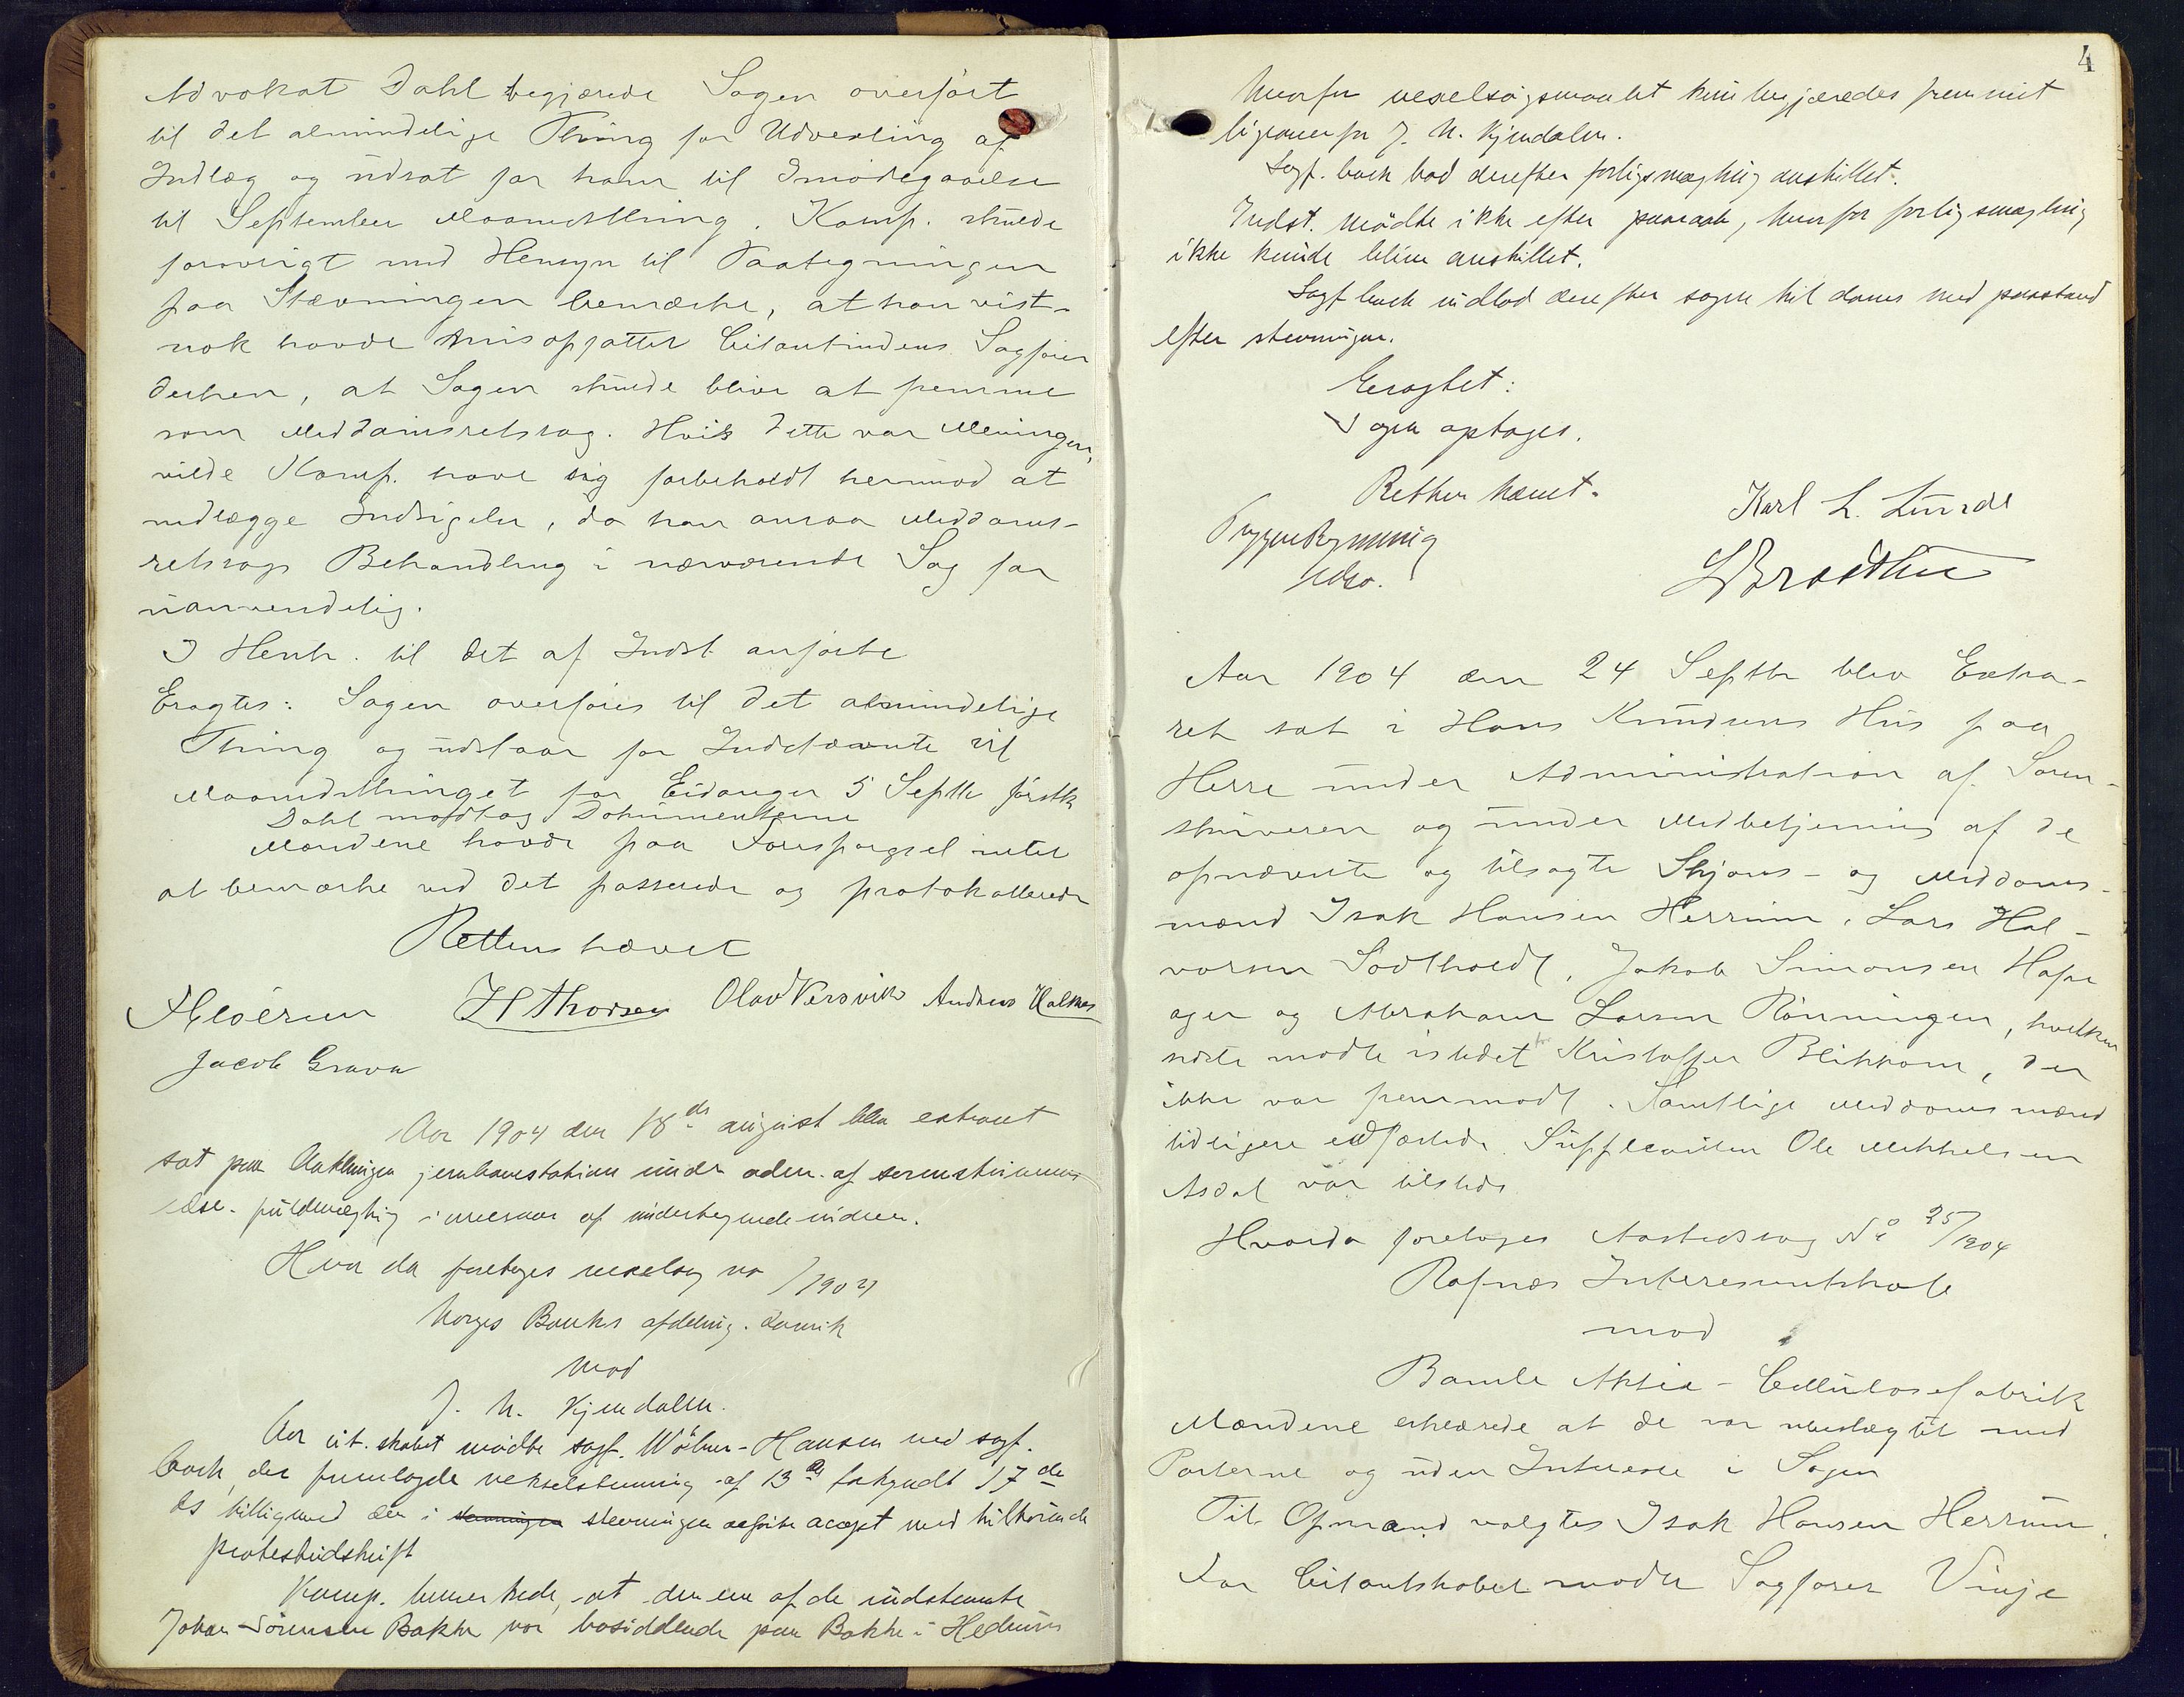 Advokat Dahl begjærede Sagen overført
til det almindelige Thing for Udvexling af
Indlæg og udsat for ham til Imødegaaelse
til September Maanedsthing. Komp. skulde
forøvrigt med Hensyn til Paategningen
paa Stævningen bemærke, at han vist-
nok havde misopfattet Citantindens Sagfører
derhen, at Sagen skulde blive at fremme
som Meddomsretssag. Hvis dette var Meningen,
vilde Komp. have sig forbeholdt herimod at
nedlægge Indsigelse, da han ansaa Meddoms-
retssags Behandling i nærværende Sag for
uanvendelig.
I Henh. til det af Indst anførte
Eragtes: Sagen overføres til det almindelige
Thing og udstaar for Indstævnte til
Maanedsthinget for Eidanger 5 Septbr førstk
Dahl modtog Dokumenterne
Mændene havde paa Forespørgsel intet
at bemærke ved det passerede og protokollerede
Retten hævet
H Thorsen Olav Versvik Andreas
Jacob Grava
Aar 1904 den 18de august blev extraret
sat paa jernbanestation under adm. af sorenskriverens
edsv. fuldmægtig i overvær af undertegnede vidner.
Hvor da foretoges vexelsag no /1904
Norges Banks afdeling. Larvik
mod
J. N. Kjendalen.
For cit. skabet mødte sagf. Wölner-Hansen ved sagf.
Cock, der fremlagde vekselstevning af 13de forkyndt 17de
ds tilligemed den i stevningen stevningen anførte accept med tilhørende
protestudskrift
Komp. bemerkede, at den ene af de indstevnte
Johan Sörensen Bakke var bosiddende paa Bakke i Hedrum
4
hvorfor vexelsøgsmaalet kun begjæredes fremmet
ligeoverfor J. N. Kjendalen.
Sagf. Cock bad derefter forligsmægling anstillet.
Indst. mødte ikke efter paaraab, hvorfor forligsmægling
ikke kunde blive anstillet.
Sagf Cock indlod derefter sagen til doms med paastand
efter stevningen.
Eragtet:
Sagen optages.
Retten hævet.
Karl L. Lunde
Trygve Rynning
edsv.
L Brodtkorb
Aar 1904 den 24 Septbr blev Extra-
ret sat i Hans Knudsens Hus paa
Herre under Administration af Soren-
skriveren og under Medbetjening af de
opnævnte og tilsagte Skjøns- og Meddoms-
mænd Isak Hansen Herrum, Lars Hal-
vorsen Sodtholdt, Jakob Simonsen Hafs
ager og Abraham Larsen Rønningen, hvilken
sidste mødte istedet for Kristoffer Blikkom, der
ikke var fremmødt. Samtlige Meddomsmænd
tidligere edfæstede. Suppleanten Ole Mikkelsen
Asdal var tilstede
Hvorda foretoges Aastedssag No 25/1904
Rafnæs Interessentskab
mod
Bamle Aktie-Cellulosefabrik
Mændene erklærede at de var ubeslægtet med
Parterne og uden Interesse i Sagen
Til Opmand valgtes Isak Hansen Herrum.
For Citantskabet mødte Sagfører Vinje